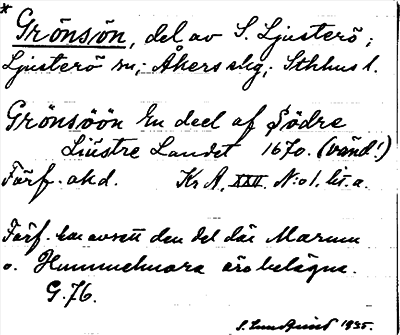 * Grönsön, del av S. Ljusterö;
Ljusterö sn; Åkers slg; Sthlms l.
Grönsöön En deel af Södre
Liüstre Landet 1670. (vänd!)
Förf. okd. Kr A, XXII. N:o 1. lit. a.
Förf. har avsett den del där Marum
o. Hummelmora äro belägna.
G. 76.
S. Lundqvist 1935.